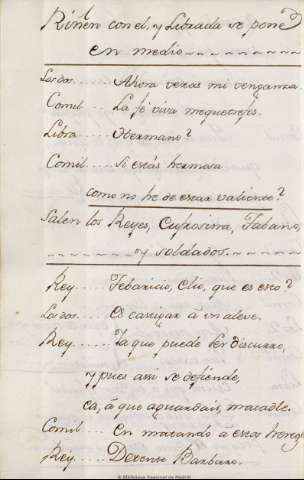 Riñen con el, y Librada se pone
en medio
Los dos..... Ahora veras mi venganza.
Comil... La fe viva mequetrefes.
Libra..... Hermano?
Comil.... Si estás hermosa
como no he de estar valiente?
Salen los Reyes, Eufrosina, Fabano,
y soldados.
Rey..... Febricio, Clio, que es esto?
Los dos.... Es castigar á un aleve.
Rey..... Ya que puede ser discurro,
y pues assi se defiende,
ea, á que aguardais, matadle.
Comil... En matando á estos hereges
Rey..... Detente Barbaro.
Biblioteca Nacional de España